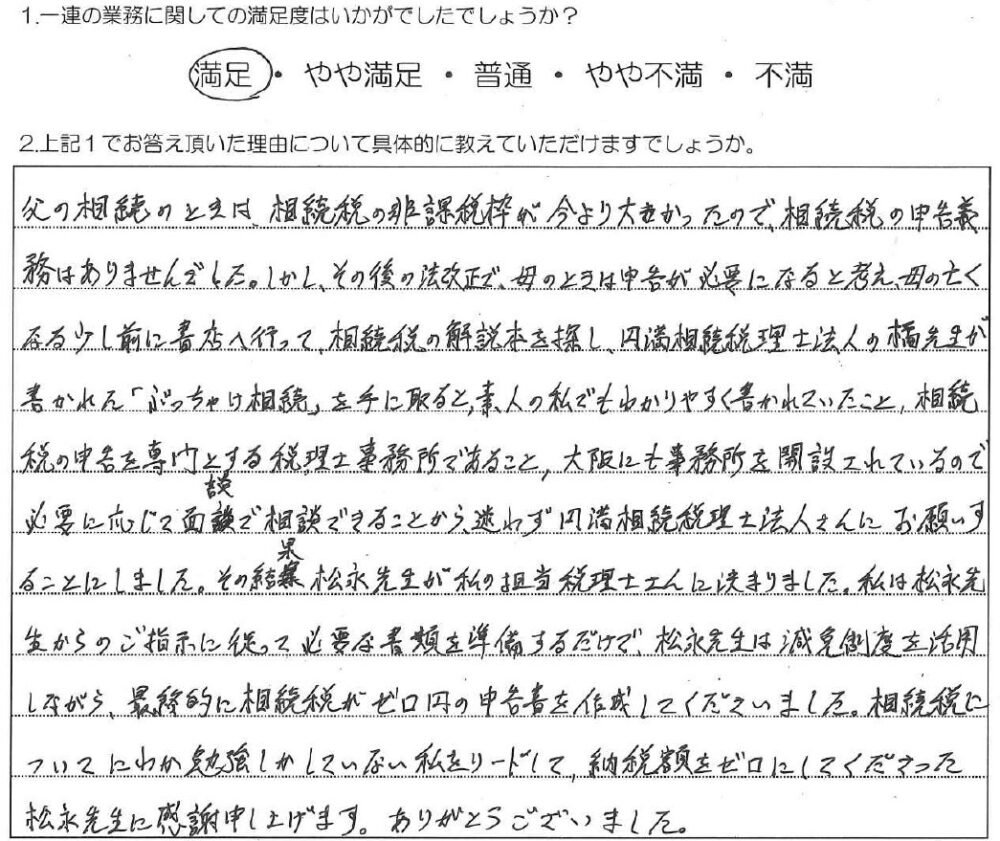 1.一連の業務に関しての満足度はいかがでしたでしょうか?
満足・ やや満足 ・ 普通 ・ やや不満 ・ 不満
2.上記1でお答え頂いた理由について具体的に教えていただけますでしょうか。
父の相続のときは、相続税の非課税枠が今より大きかったので、相続税の申告義
務はありませんでした。しかし、その後の法改正で、母のときは申告が必要になると考え、母の亡く
なる少し前に書店へ行って、相続税の解説本を探し、円満相続税理士法人の橘先生が
書かれた「ぶっちゃけ相続」を手に取ると、素人の私でもわかりやすく書かれていたこと、相続
税の申告を専門とする税理士事務所であること、大阪にも事務所を開設されているので
必要に応じて面談で相談できることから、迷わず円満相続税理士法人さんにお願いす
ることにしました。その結果松永先生が私の担当税理士さんに決まりました。私は松永先
生からのご指示に従って必要な書類を準備するだけで、松永先生は減免制度を活用
しながら、最終的に相続税がゼロ円の申告書を作成してくださいました。相続税に
ついてにわか勉強しかしていない私をリードして、納税額をゼロにしてくださった
松永先生に感謝申し上げます。ありがとうございました。